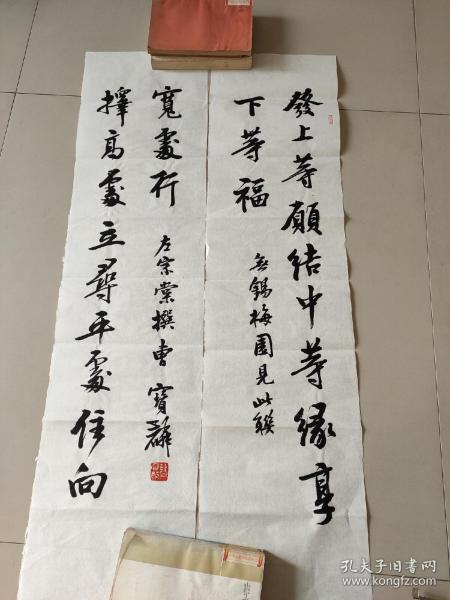 發上等願結中等緣享
下等福
無錫梅園見此聯
擇高處立尋平處住向
寬處行
左宗棠撰曹寶麟
孔夫子旧书网
www.kongfz.com